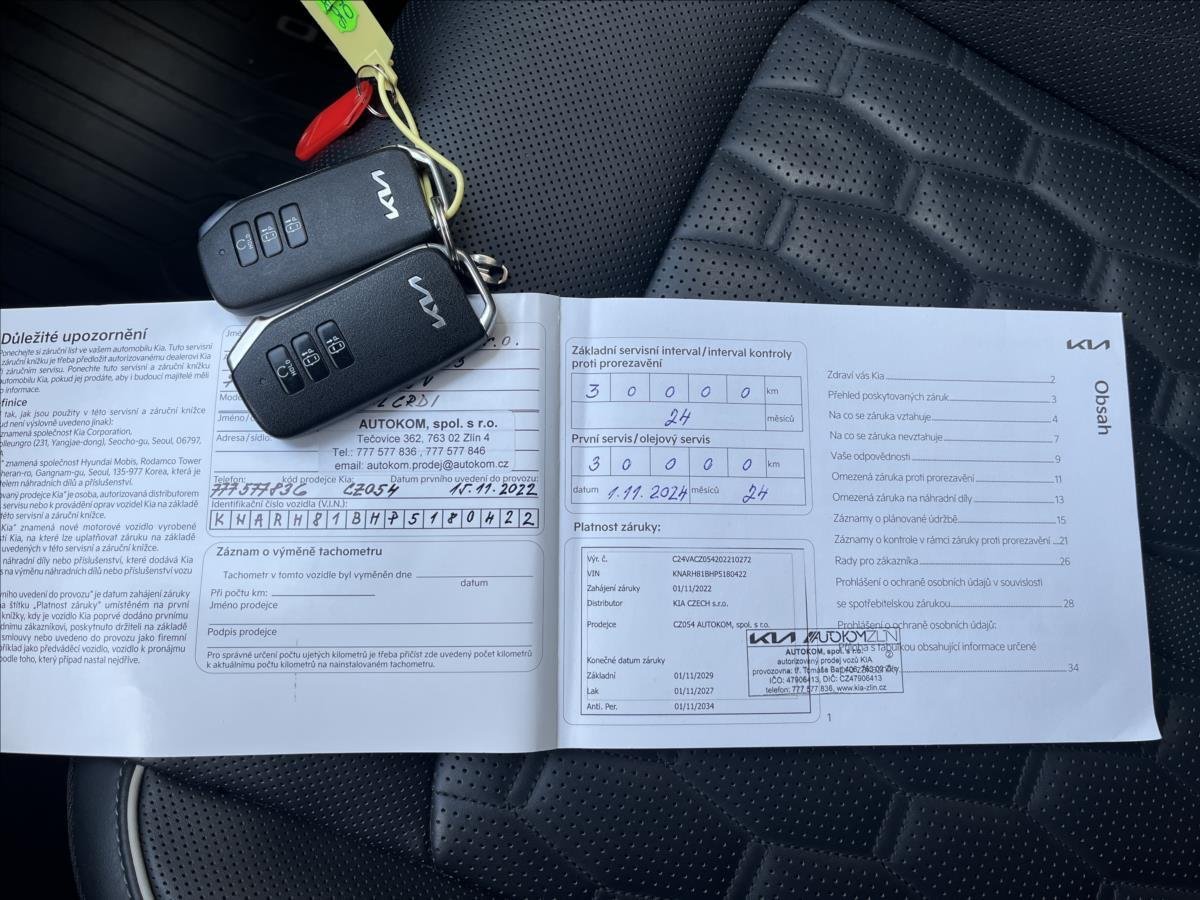 KIA
HOLD
KIA
HOLD
Důležité upozornění
Ponechejte si záruční list ve vašem automobilu Kia. Tuto servisní
záruční knížku je třeba předložit autorizovanému dealerovi Kia
záručním servisu. Ponechte tuto servisní a záruční knížku
automobilu Kia, pokud jej prodáte, aby i budoucí majitelé měli
informace.
finice
tak, jak jsou použity v této servisní a záruční knížce
ud není výslovně uvedeno jinak):
znamená společnost Kia Corporation,
olleungro (231, Yangjae-dong), Seocho-gu, Seoul, 06797,
" znamená společnost Hyundai Mobis, Rodamco Tower
heran-ro, Gangnam-gu, Seoul, 135-977 Korea, která je
telem náhradních dílů a příslušenství.
ovaný prodejce Kia" je osoba, autorizovaná distributorem
servisu nebo k provádění oprav vozidel Kia na základě
této servisní a záruční knížce.
Kia" znamená nové motorové vozidlo vyrobené
tí Kia, na které lze uplatňovat záruku na základě
uvedených v této servisní a záruční knížce.
náhradní díly nebo příslušenství, které dodává Kia
s na výměnu náhradních dílů nebo příslušenství vozu
ního uvedení do provozu" je datum zahájení záruky
a štítku „Platnost záruky" umístěném na první
knížky, kdy je vozidlo Kia poprvé dodáno prvnímu
dnímu zákazníkovi, poskytnuto držiteli na základě
smlouvy nebo uvedeno do provozu jako firemní
příklad jako předváděcí vozidlo, vozidlo k pronájmu
podle toho, který případ nastal nejdříve.
r.o.
Mode
CRDI
Jméno/
Adresa/sídlo:
AUTOKOM, spol. s r.o.
Tečovice 362, 763 02 Zlín 4
Tel.: 777 577 836 , 777 577 846
email: autokom.prodej@autokom.cz
Telefon: kód prodejce Kia: Datum prvního uvedení do provozu:
777577836 CZ054 15.11.2022
Identifikační číslo vozidla (V.I.N.):
KNARH81BHP5180422
Záznam o výměně tachometru
Tachometr v tomto vozidle byl vyměněn dne
datum
Při počtu km:
Jméno prodejce
Podpis prodejce
Pro správné určení počtu ujetých kilometrů je třeba přičíst zde uvedený počet kilometrů
k aktuálnímu počtu kilometrů na nainstalovaném tachometru.
Základní servisní interval/interval kontroly
proti prorezavění
3 0 0 0 0 km
24 měsíců
První servis/olejový servis
3 0 0 0 0 km
datum 1.11.2024 měsíců 24
Platnost záruky:
Výr. č. C24VACZ054202210272
VIN KNARH81BHP5180422
Zahájení záruky 01/11/2022
Distributor KIA CZECH s.r.o.
Prodejce CZ054 AUTOKOM, spol. s r.o.
Konečné datum záruky
Základní 01/11/2029
Lak 01/11/2027
Anti. Per. 01/11/2034
KIA AUTOKOMZLÍN
AUTOKOM, spol. s r.o.
autorizovaný prodej vozů KIA
provozovna: tř. Tomáše Bati
IČO: 47906413, DIČ: CZ47906413
telefon: 777 577 836, www.kia-zlin.cz
KIA
Obsah
Zdraví vás Kia 2
Přehled poskytovaných záruk 3
Na co se záruka vztahuje 4
Na co se záruka nevztahuje 7
Vaše odpovědnosti 9
Omezená záruka proti prorezavění 11
Omezená záruka na náhradní díly 13
Záznamy o plánované údržbě 15
Záznamy o kontrole v rámci záruky proti prorezavění 21
Rady pro zákazníka 26
Prohlášení o ochraně osobních údajů v souvislosti
se spotřebitelskou zárukou 28
Prohlášení o ochraně osobních údajů:
Příloha s tabulkou obsahující informace určené
34
1